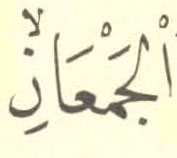 الْجَمْعَانِۙ